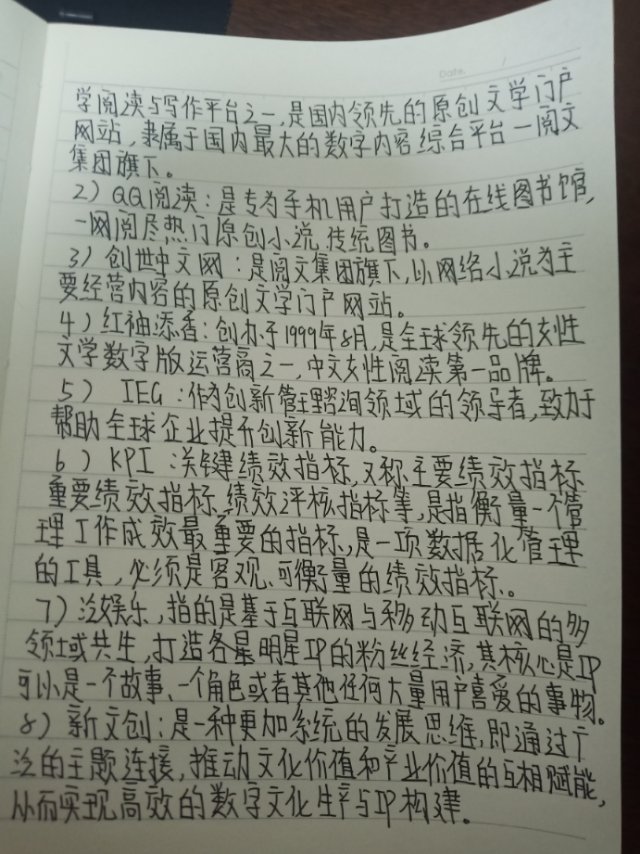 Date. /
学阅读与写作平台之一,是国内领先的原创文学门户
网站,隶属于国内最大的数字内容综合平台一阅文
集团旗下。
2)QQ阅读:是专为手机用户打造的在线图书馆,
一网阅尽热门原创小说,传统图书。
3)创世中文网:是阅文集团旗下,以网络小说为主
要经营内容的原创文学门户网站。
4)红袖添香:创办于1999年8月,是全球领先的女性
文学数字版运营商之一,中文女性阅读第一品牌。
5) IEG:作为创新管理咨询领域的领导者,致力于
帮助全球企业提升创新能力。
6)KPI:关键绩效指标,又称主要绩效指标
重要绩效指标、绩效评核指标等,是指衡量一个管
理工作成效最重要的指标,是一项数据化管理
的工具,必须是客观、可衡量的绩效指标。
7)泛娱乐,指的是基于互联网与移动互联网的多
领域共生,打造明星IP的粉丝经济,其核心是IP
可以是一个故事、一个角色或者其他任何大量用户喜爱的事物。
8)新文创:是一种更加系统的发展思维,即通过广
泛的主题连接,推动文化价值和产业价值的互相赋能,
从而实现高效的数字文化生产与IP构建。